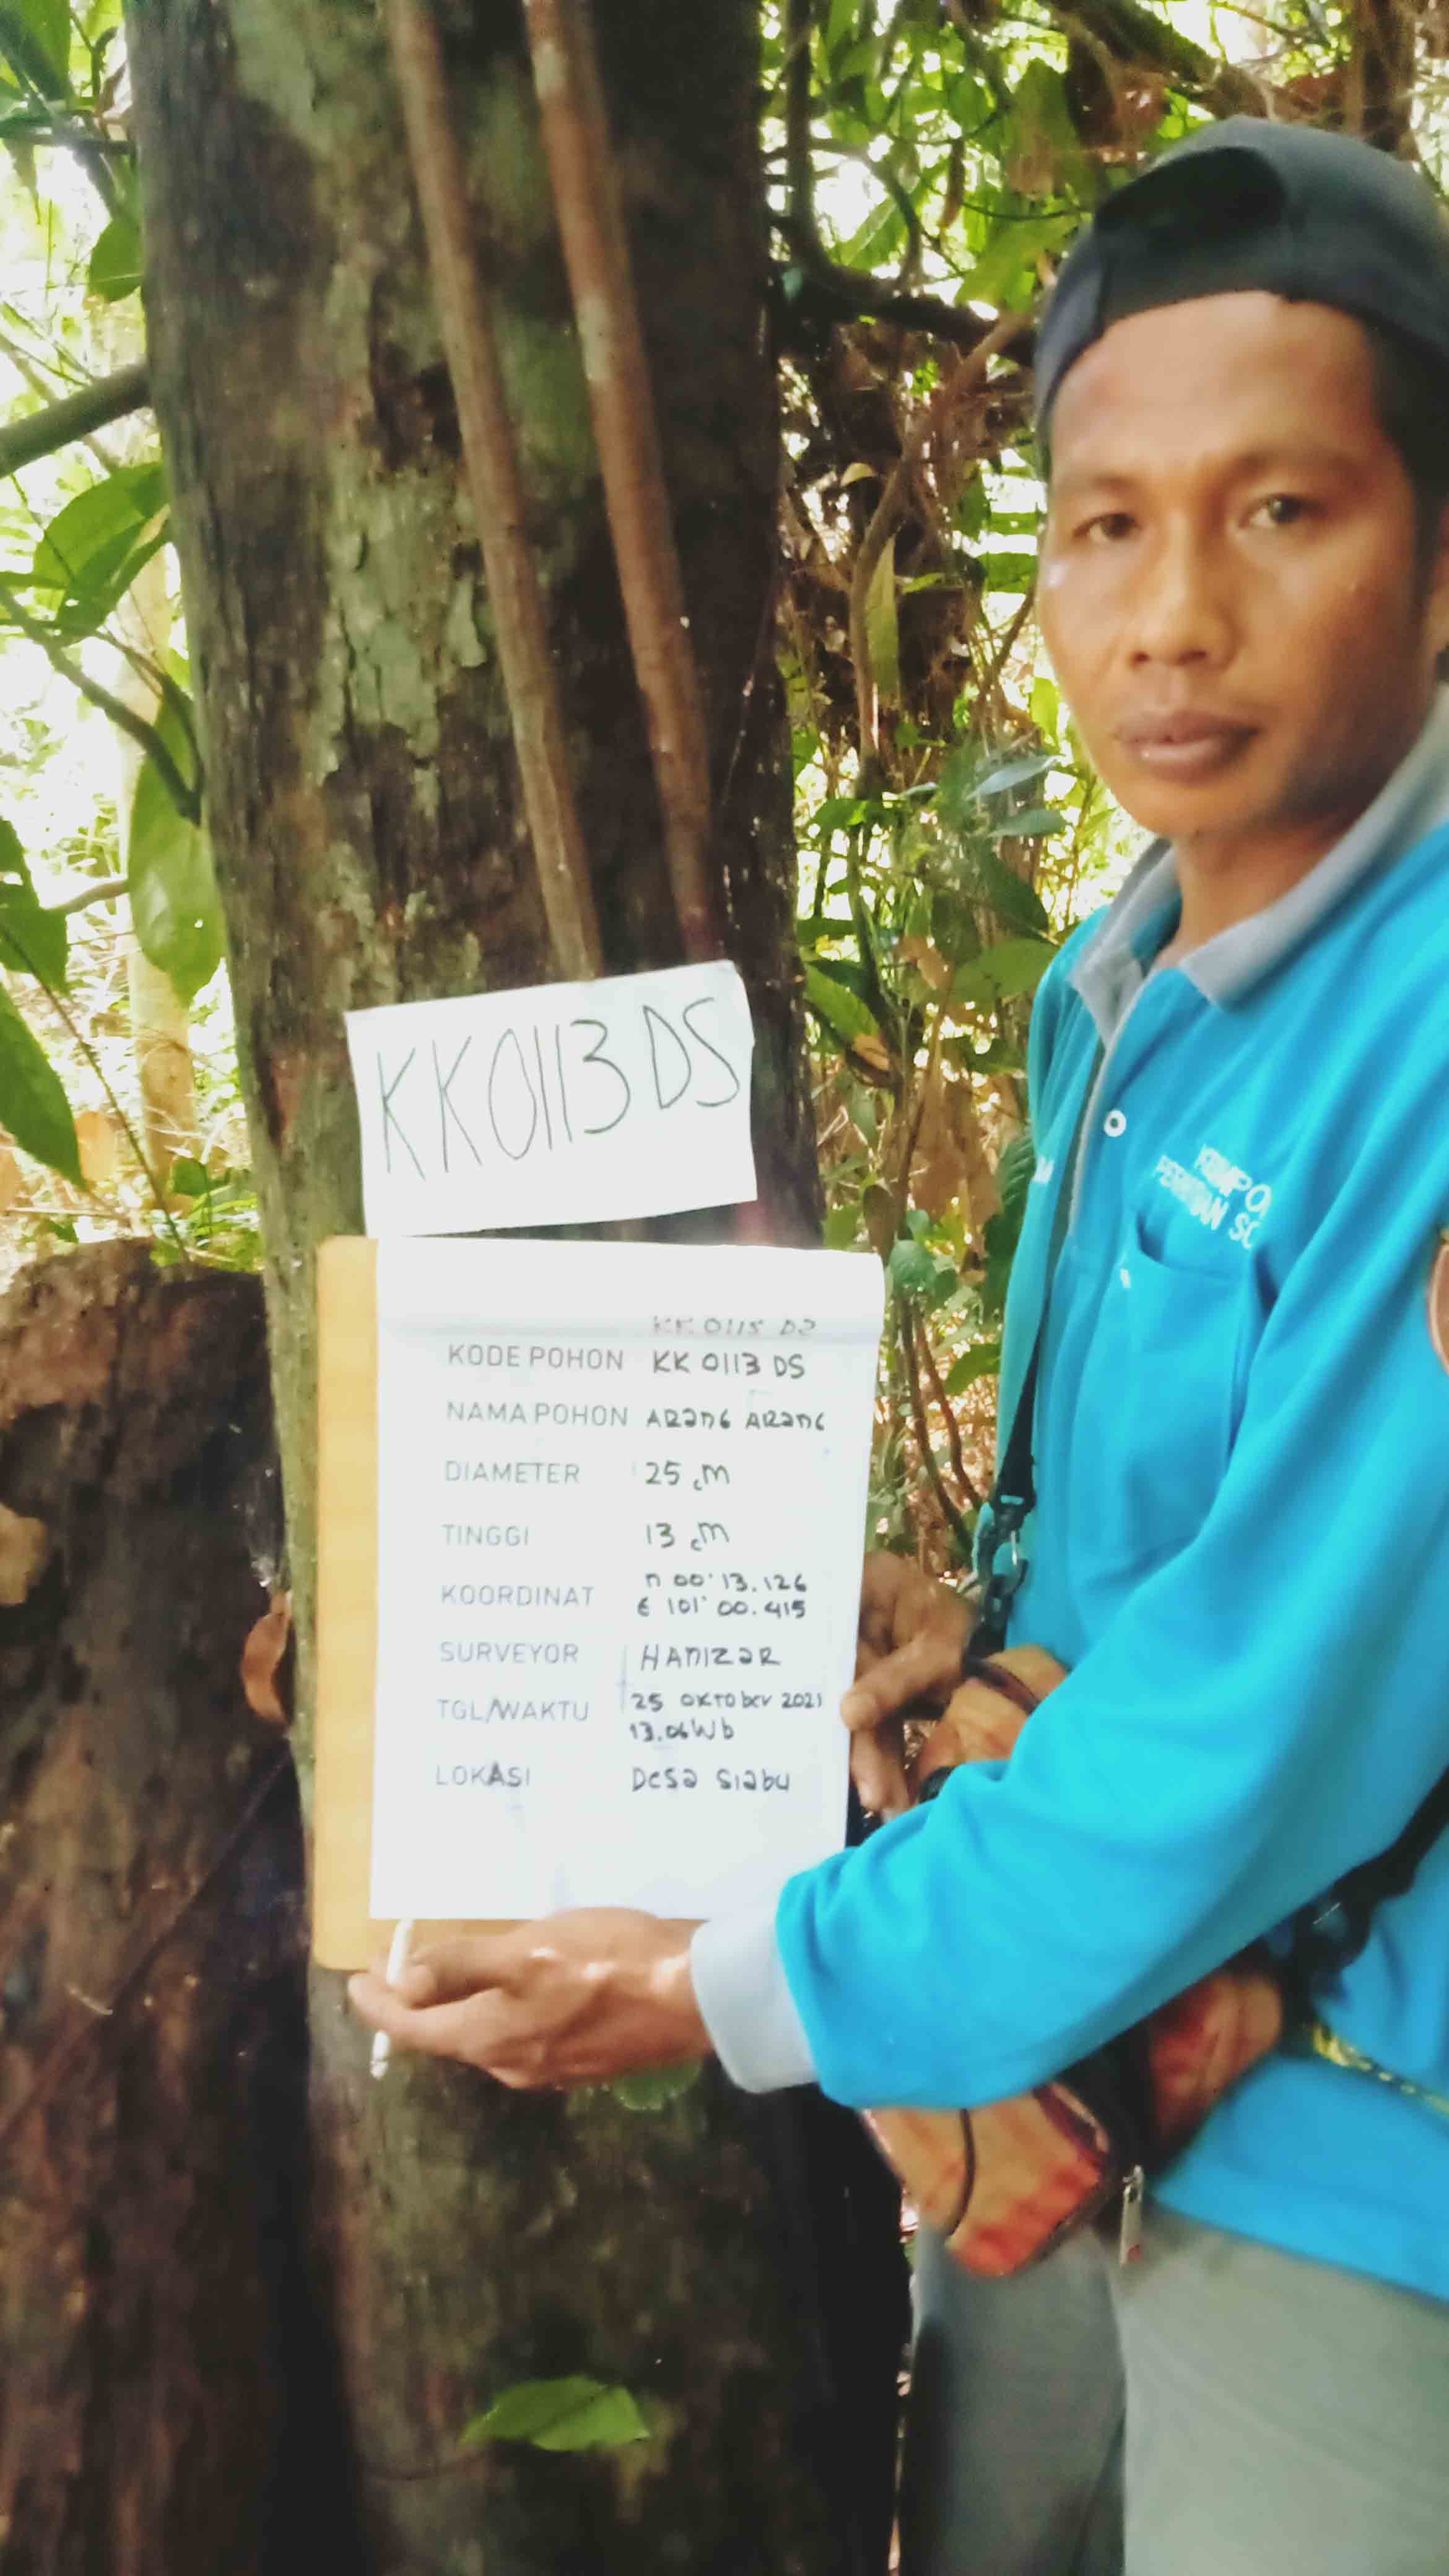 KK0113 DS
KK 0115 DS
KODE POHON KK 0113 DS
NAMA POHON ARanG ARanG
DIAMETER 25 cm
TINGGI 13 cm
KOORDINAT n 00° 13. 126
E 101° 00. 415
SURVEYOR HANIZaR
TGL/WAKTU 25 OKTOber 2021
13.06 Wb
LOKASI Desa Siabu